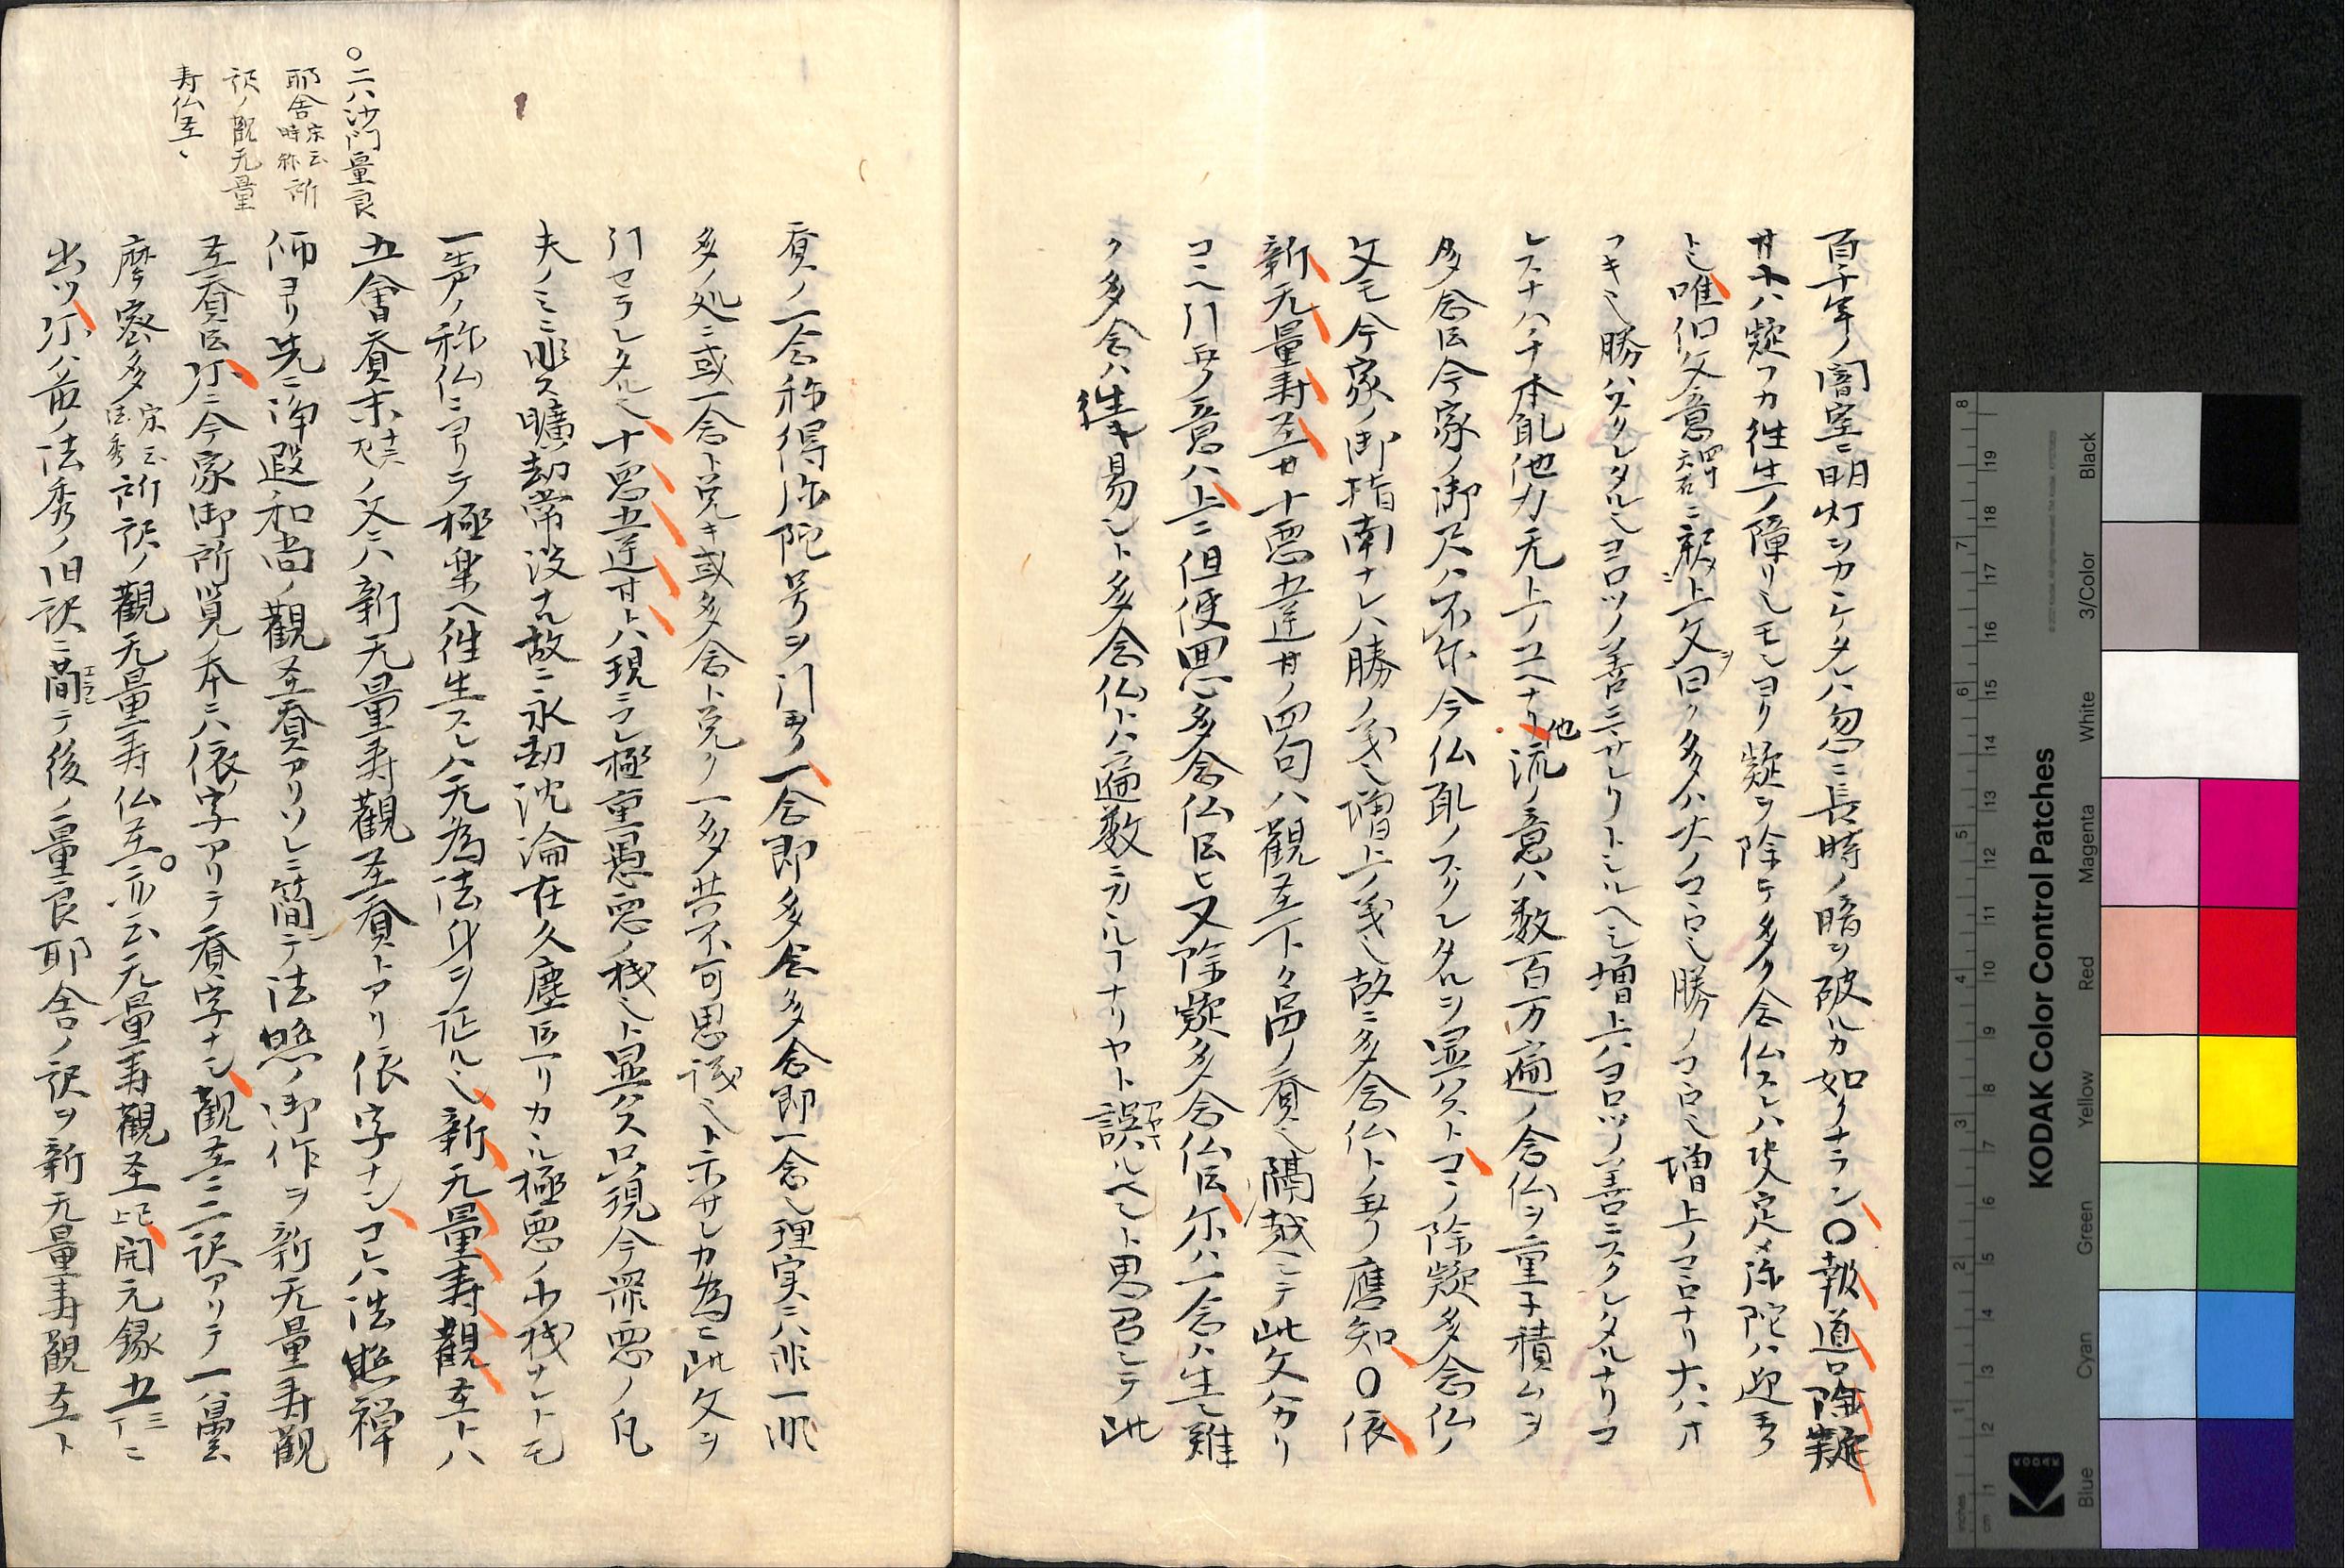 百千年ノ闇室ニ明灯ヲカヽケタルハ忽ニ長時ノ暗ヲ破ルカ如クナラン〇報道只除疑
サレハ疑フカ往生ノ障リ也モシヨリ疑ヲ除テ多ク念仏スレハ決定メ弥陀ハ迎玉フ
ト也唯但文意ニ上ノ文ヲ曰ク多ハ大ノコヽロ也勝ノコヽロ也増上ノコヽロナリ大ハオ
フキ也勝ハスクレタル也ヨロツノ善ニマサレリトシルヘシ増上ハヨロツノ善ニスクレタルナリコ
レスナハチ本願他力无上ノユヘナリ他流ノ意ハ数百万遍ノ念仏ヲ重子積ムヲ
多念ト云今家ノ御尺ハ不尓今仏願ノスクレタルヲ显ハストコノ除疑多念仏ノ
文モ今家ノ御指南ナレハ勝ノ義也増上ノ義也故ニ多念仏トノ玉フ應知〇依
新无量寿𦀇サ十悪五逆サノ四句ハ觀𦀇下々品ノ賛也隔越シテ此文ハカリ
コヽヘ引玉フ意ハ上ニ但使𢌞思多念仏ト云ヒ又除疑多念仏ト云尓ハ一念ハ生レ難
ク多念ハ往キ易シト多念仏トハ遍数ニカヽルコナリヤト誤ルヘシト思召シテ此
賛ノ一念称得弥陀号ヲ引玉フ一念即多念多念即一念也理実ニハ非一非
多ノ処ニ或一念ト説キ或多念ト説ク一多共不可思議也ト示サレカ為ニ此文ヲ
引セラレタル也十悪五逆サトハ現ニコレ極重愚悪ノ機也ト显ハス只現今罪悪ノ凡
夫ノミニ非ス曠劫常没ナル故ニ永劫沈淪在久塵ト云リカヽル極悪ノ劣機ナレトモ
一声ノ称仏ニヨリテ極楽ヘ往生スレハ无為法身ヲ証ル也新无量寿觀𦀇トハ
五會賛末ノ文ニハ新无量寿觀𦀇賛トアリ依字ナシコレハ法照禅
師ヨリ先ニ浄遐和尚ノ觀𦀇賛アリソレニ簡テ法照ノ御作ヲ新无量寿觀
𦀇賛ト云尓ニ今家御所覧ノ本ニハ依ノ字アリテ賛ノ字ナシ觀𦀇ニ二訳アリテ一ハ曇
摩密多宋云法秀所訳ノ觀无量寿仏𦀇亦云无量寿觀𦀇上已開元録五三丁ニ
出ツ尓ハ前ノ法秀ノ旧訳ニ簡エラヒテ後ノ畺良耶舎ノ訳ヲ新无量寿觀𦀇ト
〇二ハ沙門畺良
耶舎宋云時称所
訳ノ觀无量
寿仏𦀇也